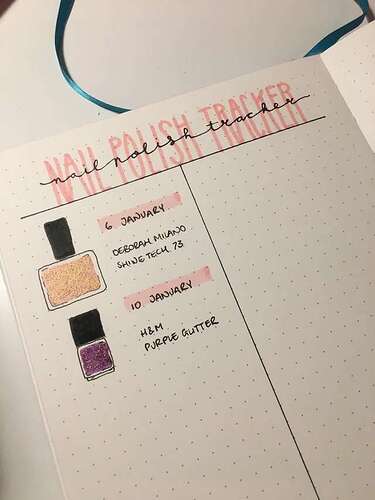 NAIL POLISH TRACKER
nail polish tracker
6 JANUARY
DEBORAH MILANO
SHINE TECH 73
10 JANUARY
H&M
PURPLE GLITTER